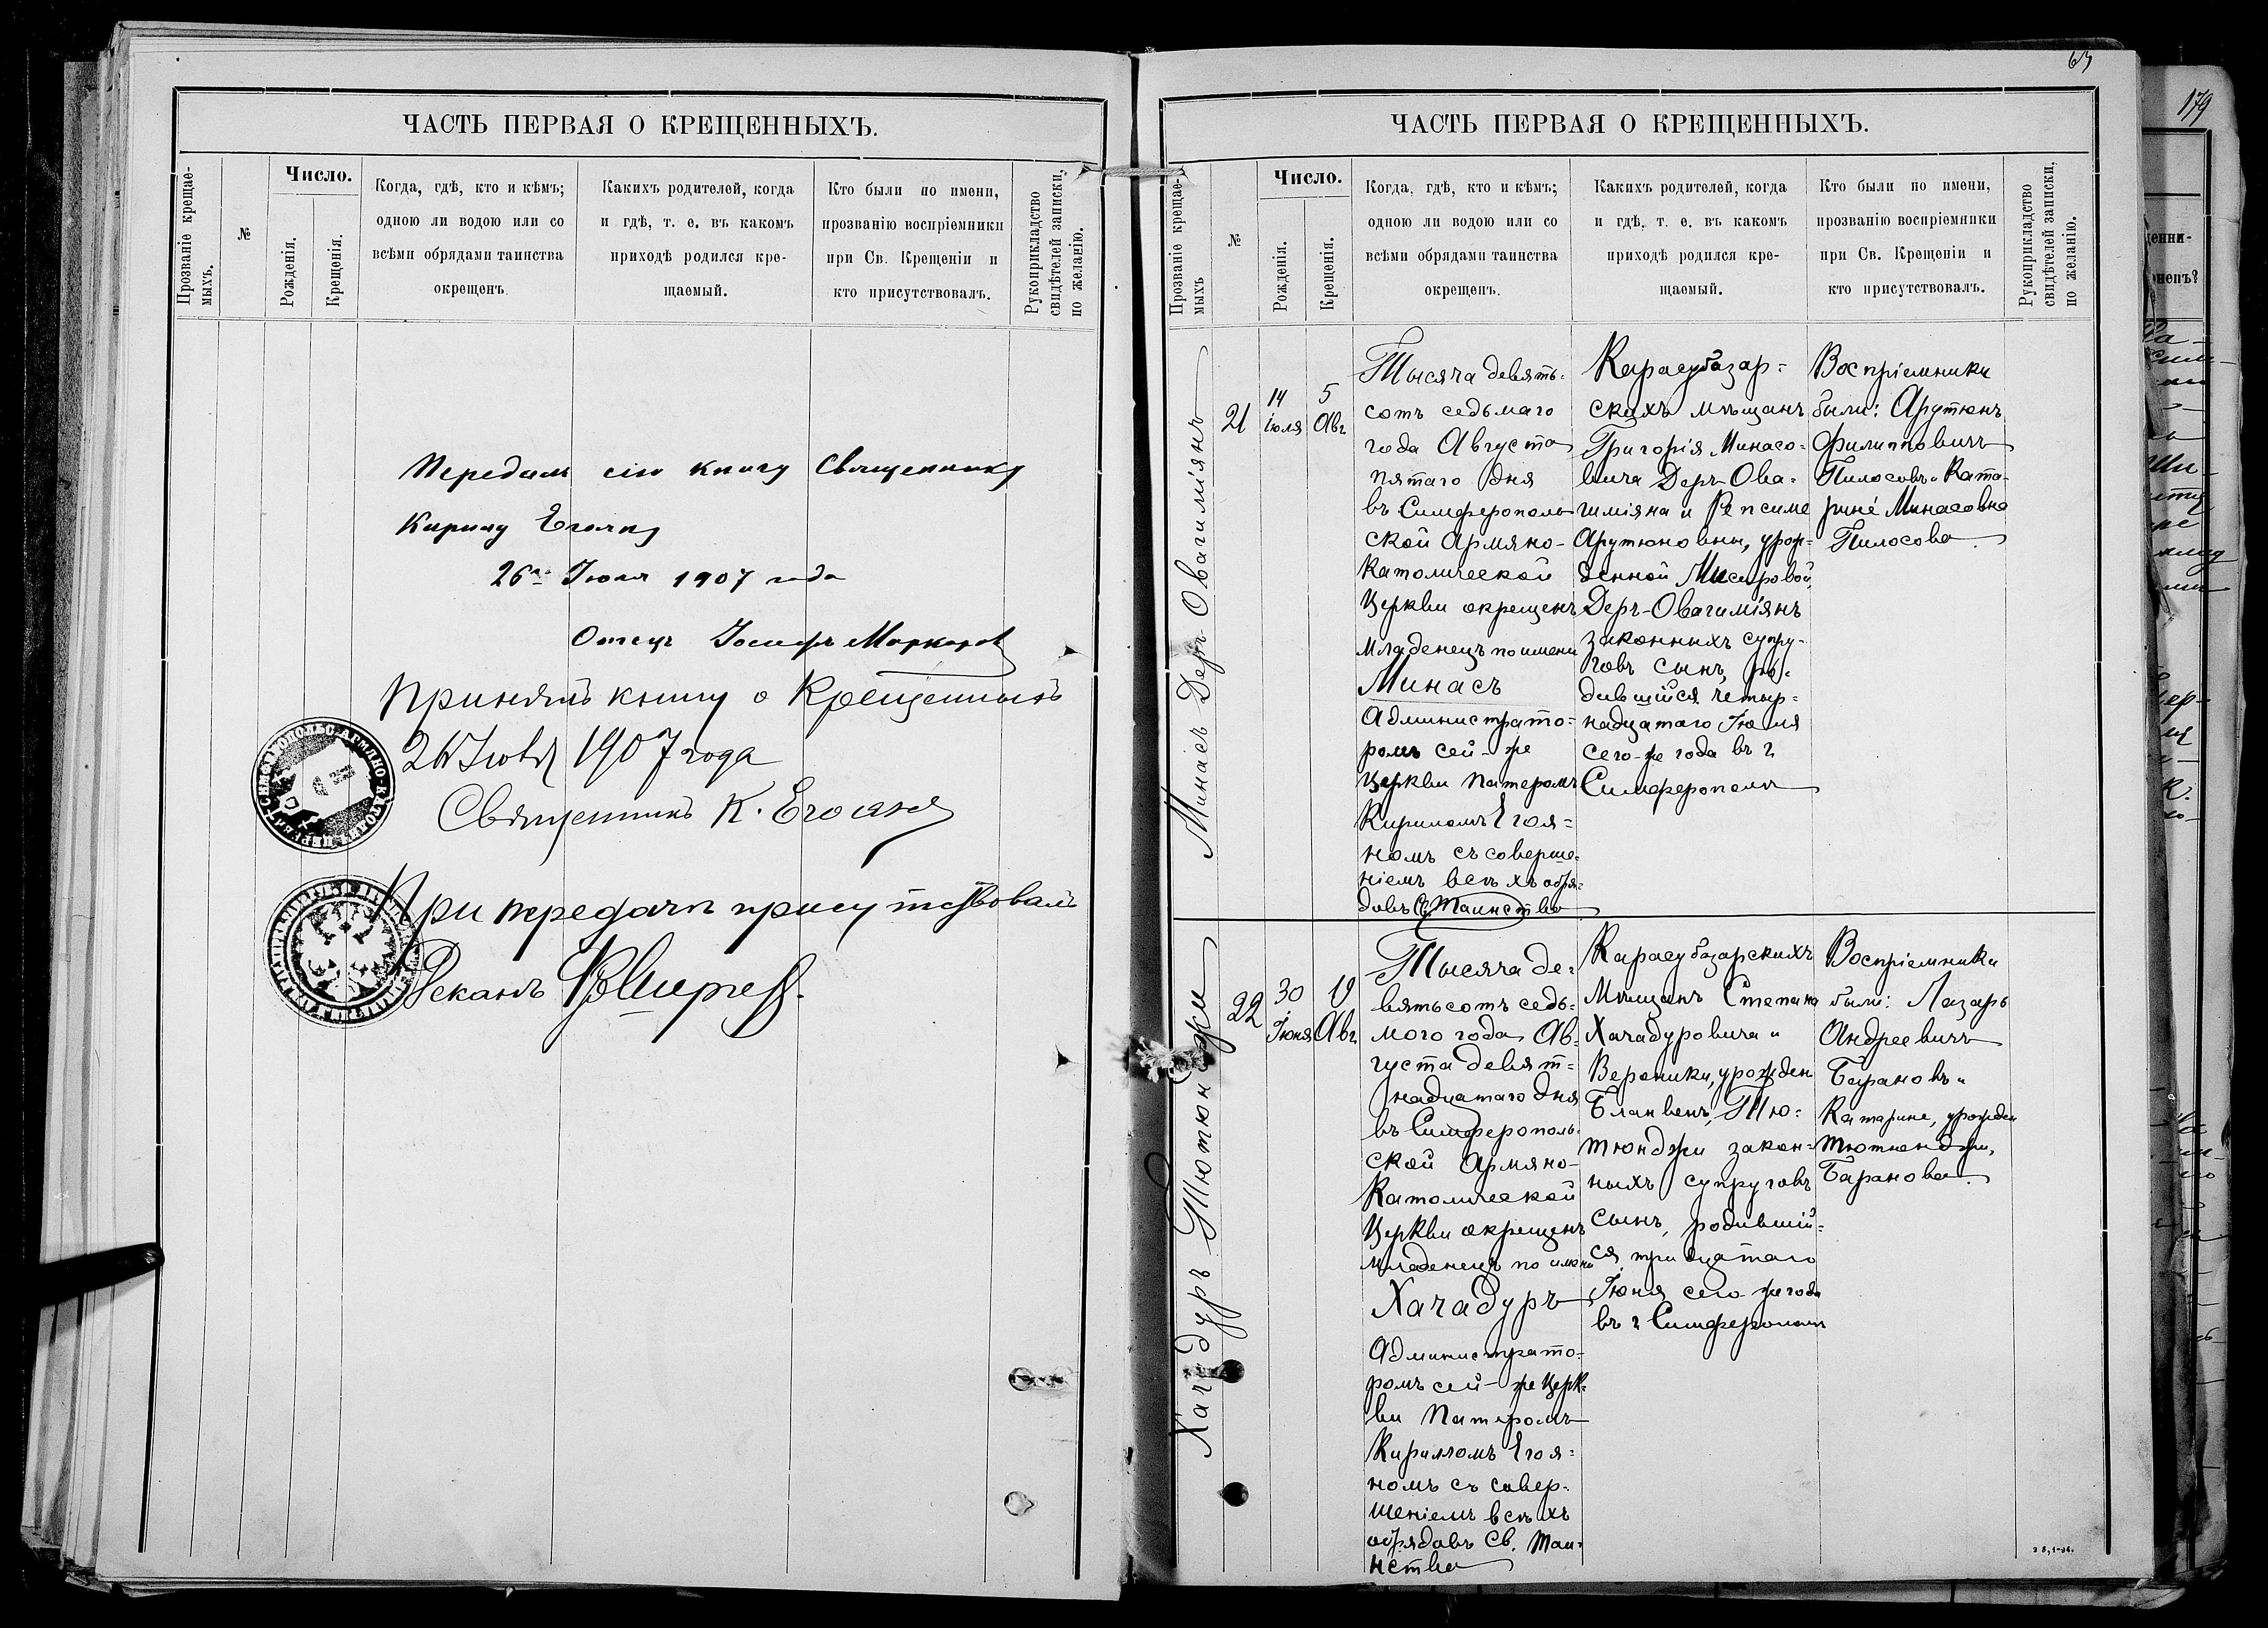 ЧАСТЬ ПЕРВАЯ О КРЕЩЕННЫХЪ.
Прозваніе крещае-
мыхъ.
№
Число.
Рожденія.
Крещенія.
Когда, гдѣ, кто и кѣмъ;
одною ли водою или со
всѣми обрядами таинства
окрещенъ
Какихъ родителей, когда
и гдѣ, т. е. въ какомъ
приходѣ родился кре-
щаемый.
Кто были по имени,
прозванію воспріемники
при Св. Крещеніи и
кто присутствовалъ.
Рукоприкладство
свидѣтелей записки,
по желанію.
Передалъ сію книгу Священнику
Кирилу Егояну
26го Іюля 1907 года
Отецъ Іосифъ Маркаровъ
Принялъ книгу о Крещенныхъ
26 Іюля 1907 года
Священникъ К. Егоянъ
При передачѣ присутствовалъ
Деканъ
63
ЧАСТЬ ПЕРВАЯ О КРЕЩЕННЫХЪ.
Прозваніе крещае-
мыхъ
№
Число.
Рожденія.
Крещенія.
Когда, гдѣ, кто и кѣмъ;
одною ли водою или со
всѣми обрядами таинства
окрещенъ.
Какихъ родителей, когда
и гдѣ, т. е. въ какомъ
приходѣ родился кре-
щаемый.
Кто были по имени,
прозванію воспріемники
при Св. Крещеніи и
кто присутствовалъ.
Рукоприкладство
свидѣтелей записки,
по желанію.
Минасъ Деръ-Овагиміянъ
21
14
іюля
5
Авг
Тысяча девять=
сотъ седьмаго
года Августа
пятаго дня
въ Симферополь
ской Армяно-
Католической
Церкви окрещенъ
младенецъ по имени
Минасъ
Администрато=
ромъ сей-же
Церкви Патеромъ
Кириломъ Егоя=
номъ съ соверше=
ніемъ всѣхъ обря=
довъ Св. Таинства
Карасубазар=
скихъ мѣщанъ
Григорія Минасо=
вича Деръ-Ова=
гиміяна и Репсиме
Арутюновны, урож=
денной Мисировой,
Деръ-Овагиміянъ
законныхъ супру-
говъ сынъ, ро=
дившійся четыр=
надцатаго Іюля
сего-же года въ г
Симферополь
Воспріемники
были: Арутюнъ
Филипповичъ
Пилосовъ и Ката-
рине Минасовна
Пилосова.
Хачадуръ Тютюнджи
22
30
Іюня
19
Авг
Тысяча де=
вятьсотъ седь=
мого года Ав=
густа девят=
надцатаго дня
въ Симферополь=
ской Армяно-
Католической
Церкви окрещенъ
младенецъ по имени
Хачадуръ
Администрато=
ромъ сей-же Церк=
ви Патеромъ
Кирилломъ Егоя=
номъ съ совер=
шеніемъ всѣхъ
обрядовъ Св. Таи=
нства
Карасубазарскихъ
Мѣщанъ Степана
Хачадуровича и
Вероники, урожден
Тю=
тюнджи закон=
ныхъ супруговъ
сынъ, родившій=
ся тридцатаго
Іюня сего-же года
въ г Симферополь
Воспріемники
были: Лазарь
Андреевичъ
Барановъ и
Катарине, урожден
Тютюнджи,
Баранова.
179